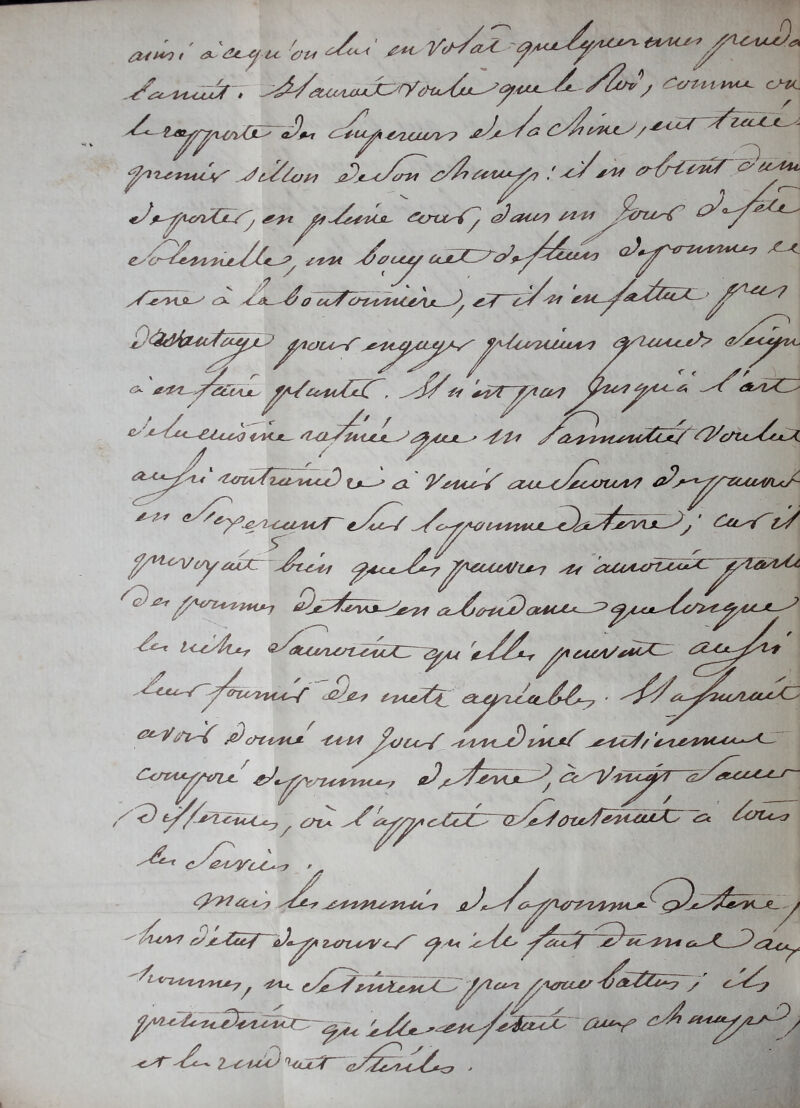 ainsi à ce qu'on lui en volât quelques unes penda
la nuit. Il aurait voulu que le Roi, comme on
le rapporte des Empereurs de la chine, eut tracé
premier sillon de son champ: il en obtint du m
de porter, en pleine cour, dans un Jour de fête
Solennelle, un bouquet de fleurs de pommes de
terre à la boutonnière, et il n'en fallut pas
davantage pour engager plusieurs grands Seign
à en faire planter. Il n'est pas Jusqu'à l'art
de la cuisine rafinée que m Parmentier voulut
aussi contraindre à venir au Secours des pauvres
en S'exerçant Sur la pomme de terre; car il
prévoyait bien que les pauvres n'auroient partout
des pommes de terre en abondance que lorsque
les riches Sauroient qu'elles peuvent aussi
leur fournir des mets agréables. Il assurait
avoir donné un Jour un diner entierement
composé de pommes de terre, à vingt Sauces
differentes, où l'appetit Se soutenait à tous
les Services.
Mais les ennemis de la pomme de terre,
hors d'état de prouver qu'elle fait du mal aux
hommes, ne Se tinrent pas pour battus; ils
pretendirent qu'elle en ferait aux champs,
et les rendrait Stériles.